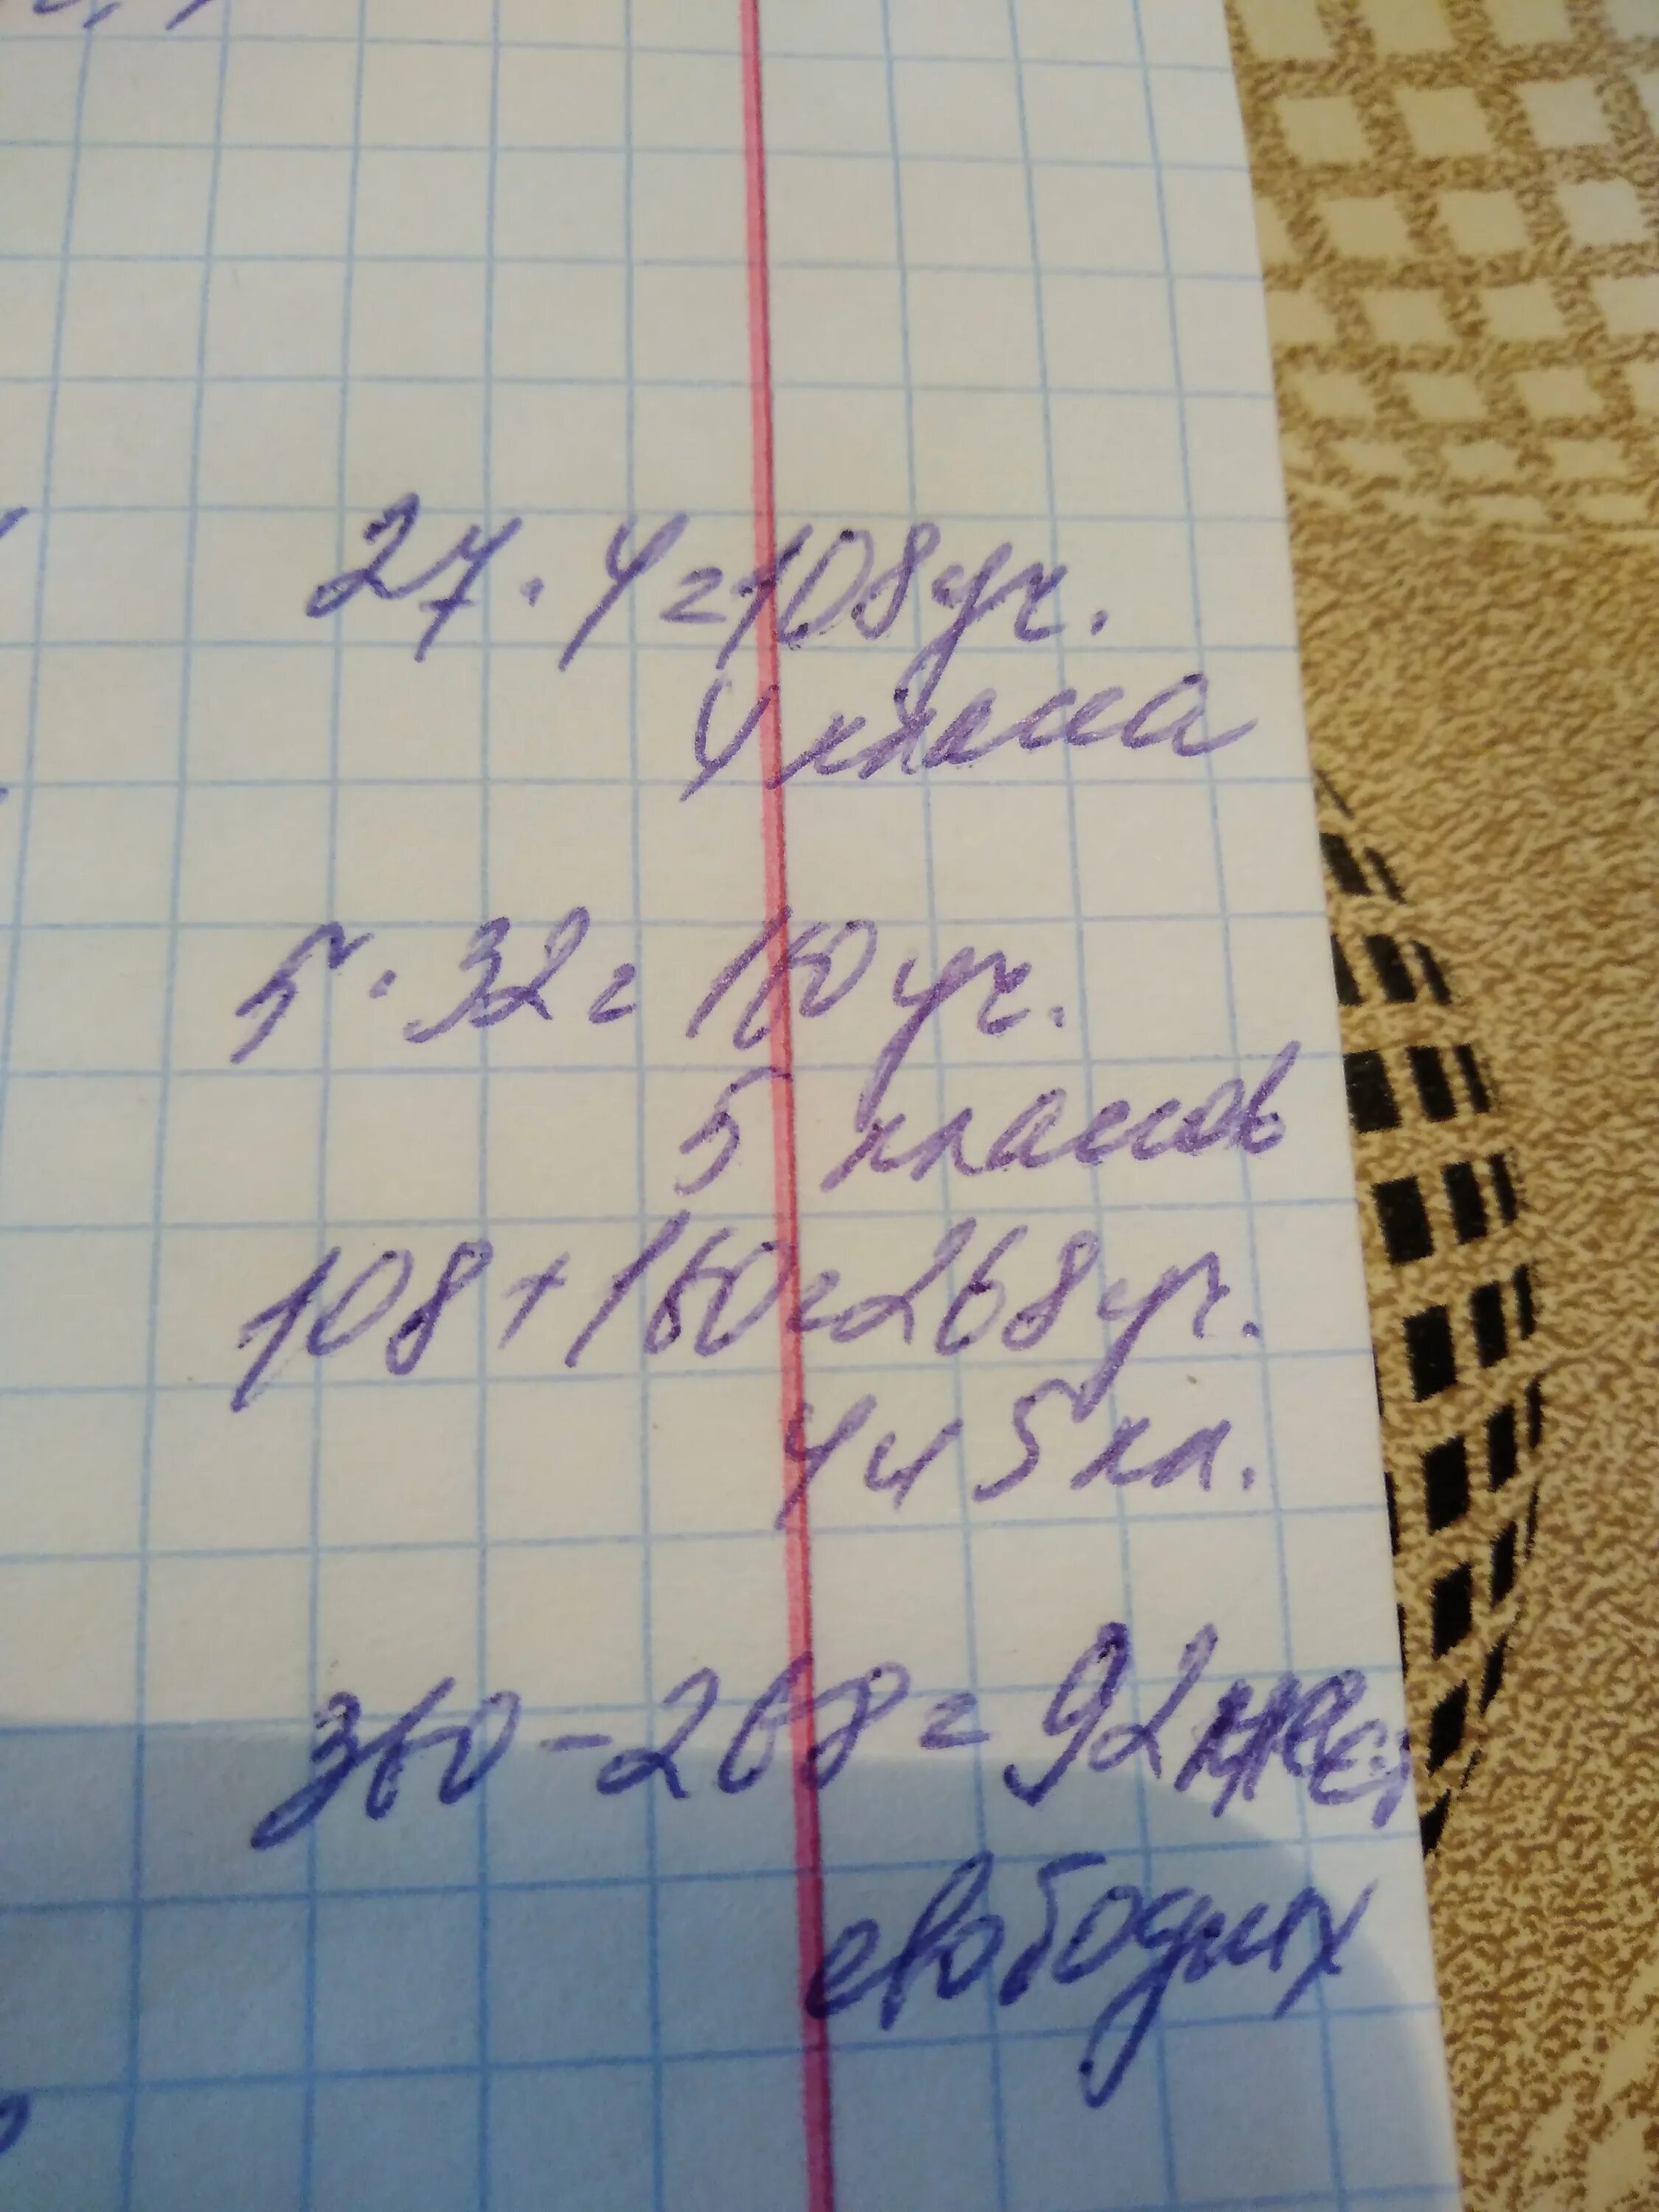 27 · 4 = 108 уч.
4 класса
5 · 32 = 160 уч.
5 классов
108 + 160 = 268 уч.
4 и 5 кл.
360 - 268 = 92
свободных